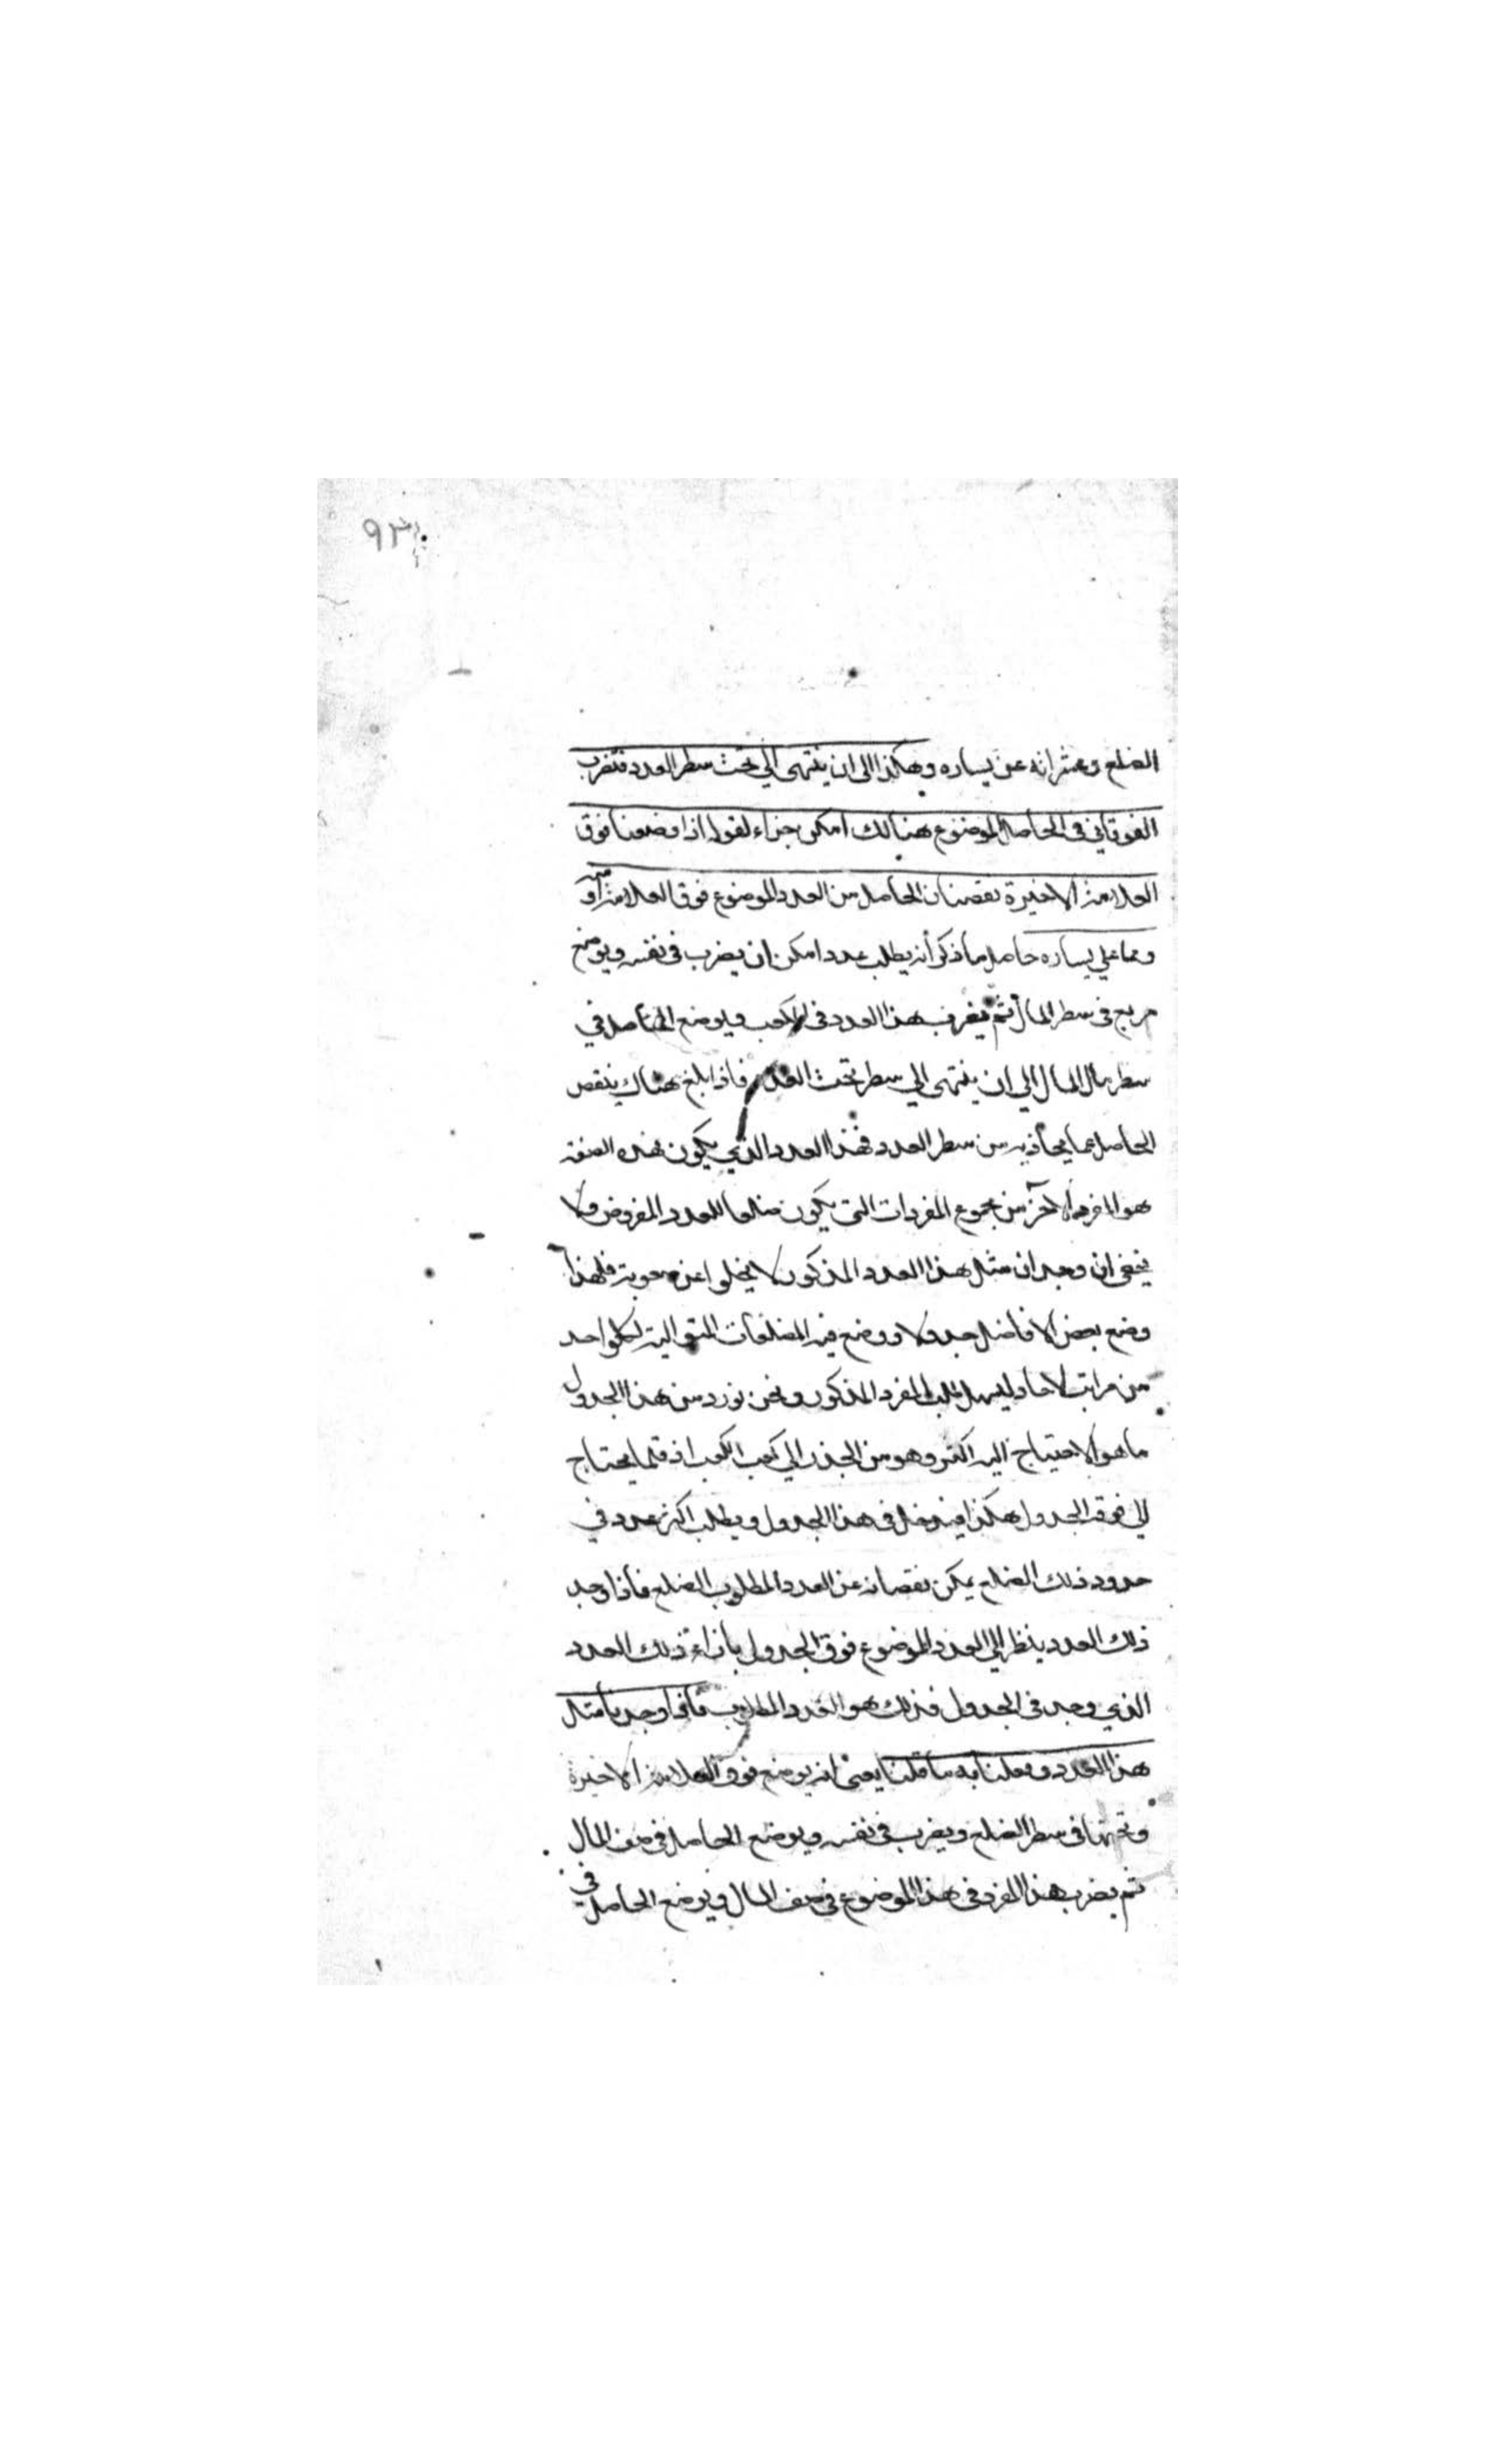 ٩٣
الضلع وعشراته عن يساره وهكذا الى ان ينتهى الي تحت سطر العدد فنضرب
الفوقاني في الحاصل الموضوع هنالك امكن جزاء لقوله اذا وضعنا فوق
العلامة الاخيرة نقصان الحاصل من العدد الموضوع فوق العلامة او منه
ومما علي يساره حاصل ما ذكر أنه يطلب عددا مكن ان يضرب في نفسه ويوضع
مربع في سطر المال ثم يضرب هذا العدد في المكعب ويوضع الحاصل في
سطر مال المال الي ان ينتهى الي سطر تحت العدد فاذا بلغ هناك ينقص
الحاصل عما يحاذيه من سطر العدد فهذا العدد الذي يكون بهذه الصفة
هو المفرد الآخر من مجموع المفردات التي يكون ضلعا للعدد المفروض ولا
يخفى ان وجدان مثل هذا العدد المذكور لا يخلوا عن صعوبة فلهذا
وضع بعض الافاضل جدولا ووضع فيه المضلعات المتوالية لكل واحد
من مراتب الاحاد ليسهل طلب المفرد المذكور ونحن نورد من هذا الجدول
ما هو الاحتياج اليه اكثر وهو من الجذر الي كعب الكعب اذ قلما يحتاج
الي فوقه الجدول هكذا فيدخل في هذا الجدول ويطلب اكثر عدد في
حدود ذلك الضلع يمكن نقصانه عن العدد المطلوب الضلع فأذا وجد
ذلك العدد ينظر الي العدد الموضوع فوق الجدول بأزاء ذلك العدد
الذي وجد في الجدول فذلك هو العدد المطلوب فأذا وجدنا مثل
هذا العدد وعملنا به ما قلنا يعنى انه يوضع فوق العلامة الاخيرة
وتحتها في سطر الضلع ويضرب في نفسه ويوضع الحاصل في صف المال
ثم يضرب هذا المفرد في هذا الموضوع في صف المال ويوضع الحاصل في